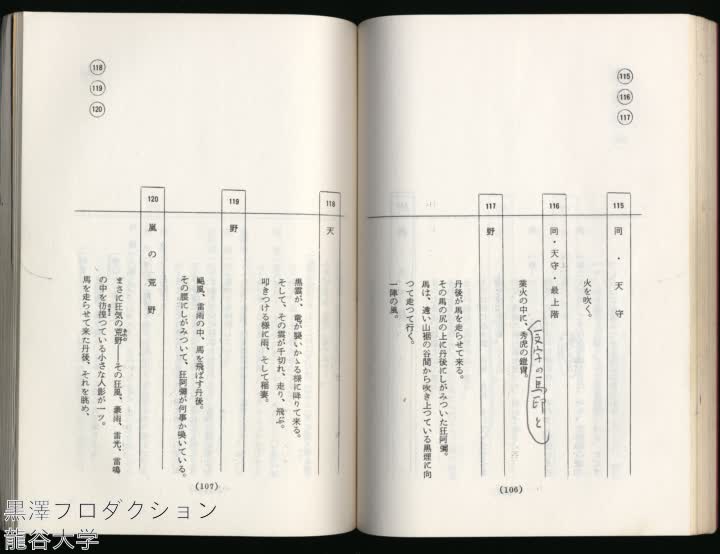 115
116
117
115
同・天守
火を吹く。
116
同・天守・最上階
業火の中に、秀虎の鎧冑。
117
野
丹後が馬を走らせて来る。
その馬の尻の上に丹後にしがみついた狂阿彌。
馬は、遠い山裾の谷間から吹き上つている黒煙に向
つて走つて行く。
一陣の風。
(106)
118
119
120
118
天
黒雲が、竜が襲いかゝる様に降りて来る。
そして、その雲が千切れ、走り、飛ぶ。
叩きつける様に雨、そして稲妻。
119
野
颱風、雷雨の中、馬を飛ばす丹後。
その腰にしがみついて、狂阿彌が何事か喚いている。
120
嵐の荒野
まさに狂気の荒野――その狂風、豪雨、雷光、雷鳴
の中を彷徨つている小さな人影が一ツ。
馬を走らせて来た丹後、それを眺め、
(107)
黒澤フロダクション
龍谷大学